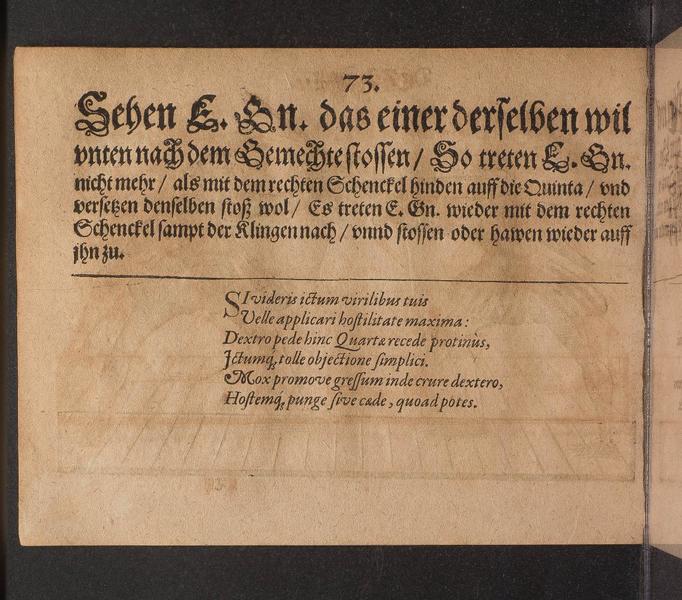 73.
Sehen E. Gn. das einer derselben wil
vnten nach dem Gemechte stossen / So treten E. Gn.
nicht mehr / als mit dem rechten Schenckel hinden auff die Quinta / vnd
versetzen denselben stoß wol / Es treten E. Gn. wieder mit dem rechten
Schenckel sampt der Klingen nach / vnnd stossen oder hawen wieder auff
jhn zu.
SI videris ictum virilibus tuis
Velle applicari hostilitate maxima:
Dextro pede hinc Quartæ recede protinùs,
Jctumq́; tolle objectione simplici.
Mox promove gressum inde crure dextero,
Hostemq́; punge sive cæde, quoad potes.